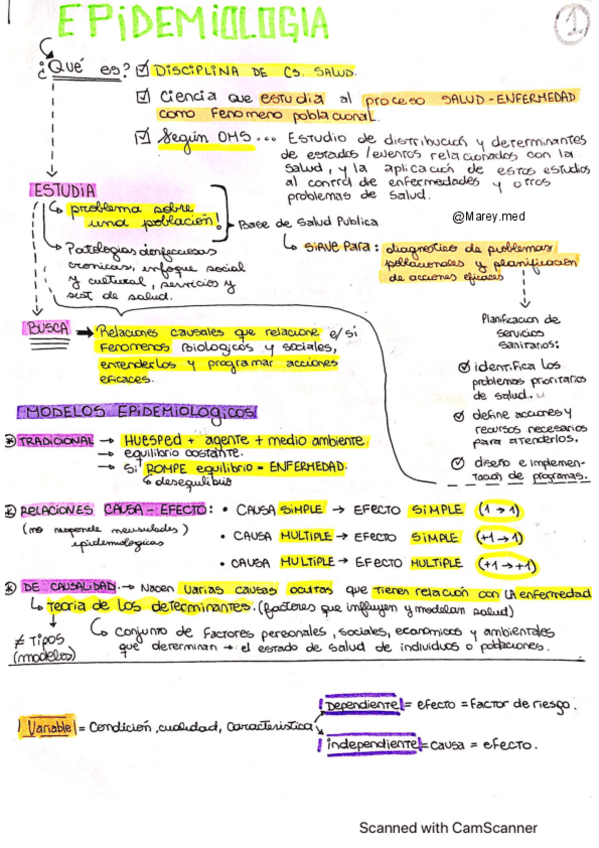 EPIDEMIOLOGIA
1
¿Qué es? DISCIPLINA DE CS. SALUD.
Ciencia que estudia al proceso SALUD-ENFERMEDAD
como Fenomeno poblacional.
Según OMS... Estudio de distribución y determinantes
de estados/eventos relacionados con la
salud, y la aplicación de estos estudios
al control de enfermedades y otros
problemas de salud.
@Marey.med
ESTUDIA
problema sobre
una población!
Base de Salud Publica
SIRVE Para: diagnostico de problemas
poblacionales y planificación
de acciones eficaces
Patologias infecciosas
cronicas, enfoque social
y cultural, servicios y
sist de salud.
Planificacion de
servicios
sanitarios:
identifica los
problemas prioritarios
de salud.
define acciones y
recursos necesarios
para atenderlos.
diseño e implemen-
tacion de programas.
BUSCA → Relaciones causales que relacione e/ si
Fenomenos Biologicos y sociales,
entenderlos y programar acciones
eficaces.
MODELOS EPIDEMIOLOGICOS
TRADICIONAL → HUESPED + agente + medio ambiente
→ equilibrio costante.
→ Si ROMPE equilibrio = ENFERMEDAD.
desequilibrio
RELACIONES CAUSA-EFECTO: • CAUSA SIMPLE → EFECTO SIMPLE (1→1)
(no responde necesidades)
epidemiologicas
• CAUSA MULTIPLE → EFECTO SIMPLE (+1→1)
• CAUSA MULTIPLE → EFECTO MULTIPLE (+1→+1)
DE CAUSALIDAD. → Nacen varias causas ocultas que tienen relación con LA enfermedad
Teoria de los determinantes. (factores que influyen y modelan salud)
≠ TIPOS
(modelos)
Conjunto de Factores personales, sociales, economicos y ambientales
que determinan → el estado de salud de individuos o poblaciones.
Variable = Condición, cualidad, Caracteristica
Dependiente = efecto = Factor de riesgo.
independiente = causa = efecto.
Scanned with CamScanner